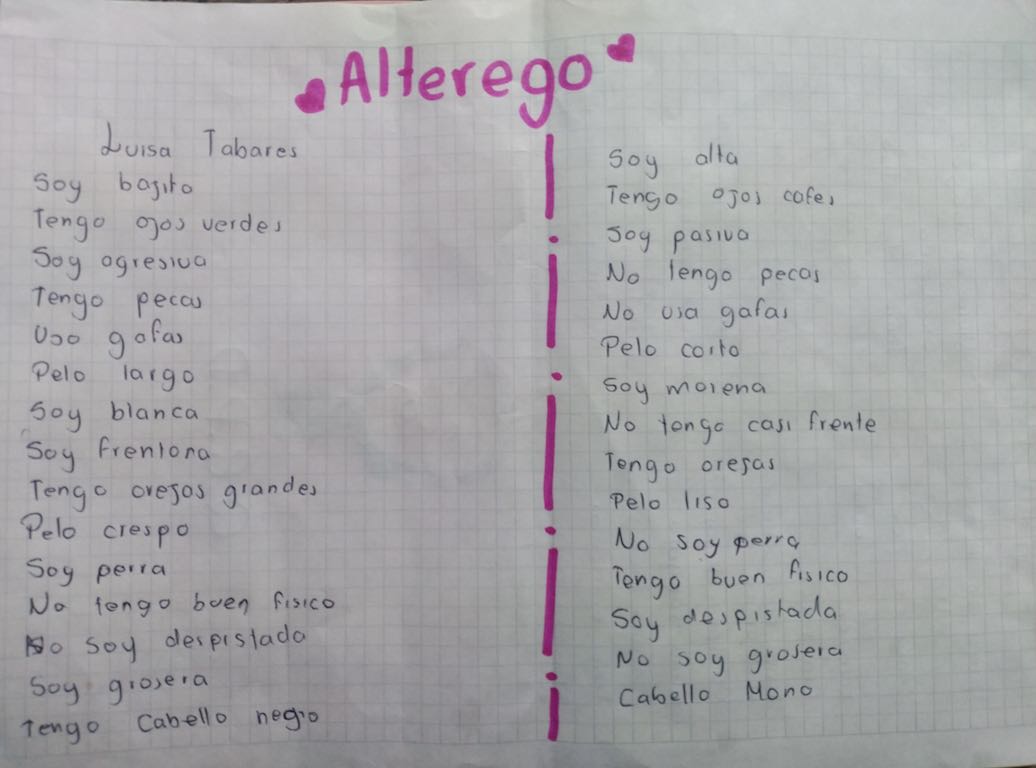 Alterego
Luisa Tabares
Soy bajita
Tengo ojos verdes
Soy agresiva
Tengo pecas
Uso gafas
Pelo largo
Soy blanca
Soy frentona
Tengo orejas grandes
Pelo crespo
Soy perra
No tengo buen fisico
No soy despistada
Soy grosera
Tengo Cabello negro
Soy alta
Tengo ojos cafes
Soy pasiva
No tengo pecas
No usa gafas
Pelo corto
Soy morena
No tengo casi frente
Tengo orejas
Pelo liso
No soy perra
Tengo buen fisico
Soy despistada
No soy grosera
Cabello Mono